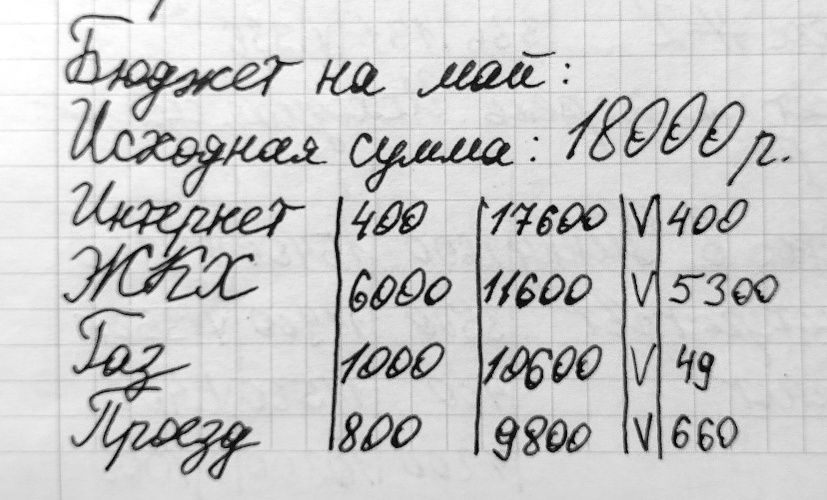 Бюджет на май:
Исходная сумма: 18000 р.
Интернет | 400 | 17600 | V | 400
ЖКХ | 6000 | 11600 | V | 5300
Газ | 1000 | 10600 | V | 49
Проезд | 800 | 9800 | V | 660